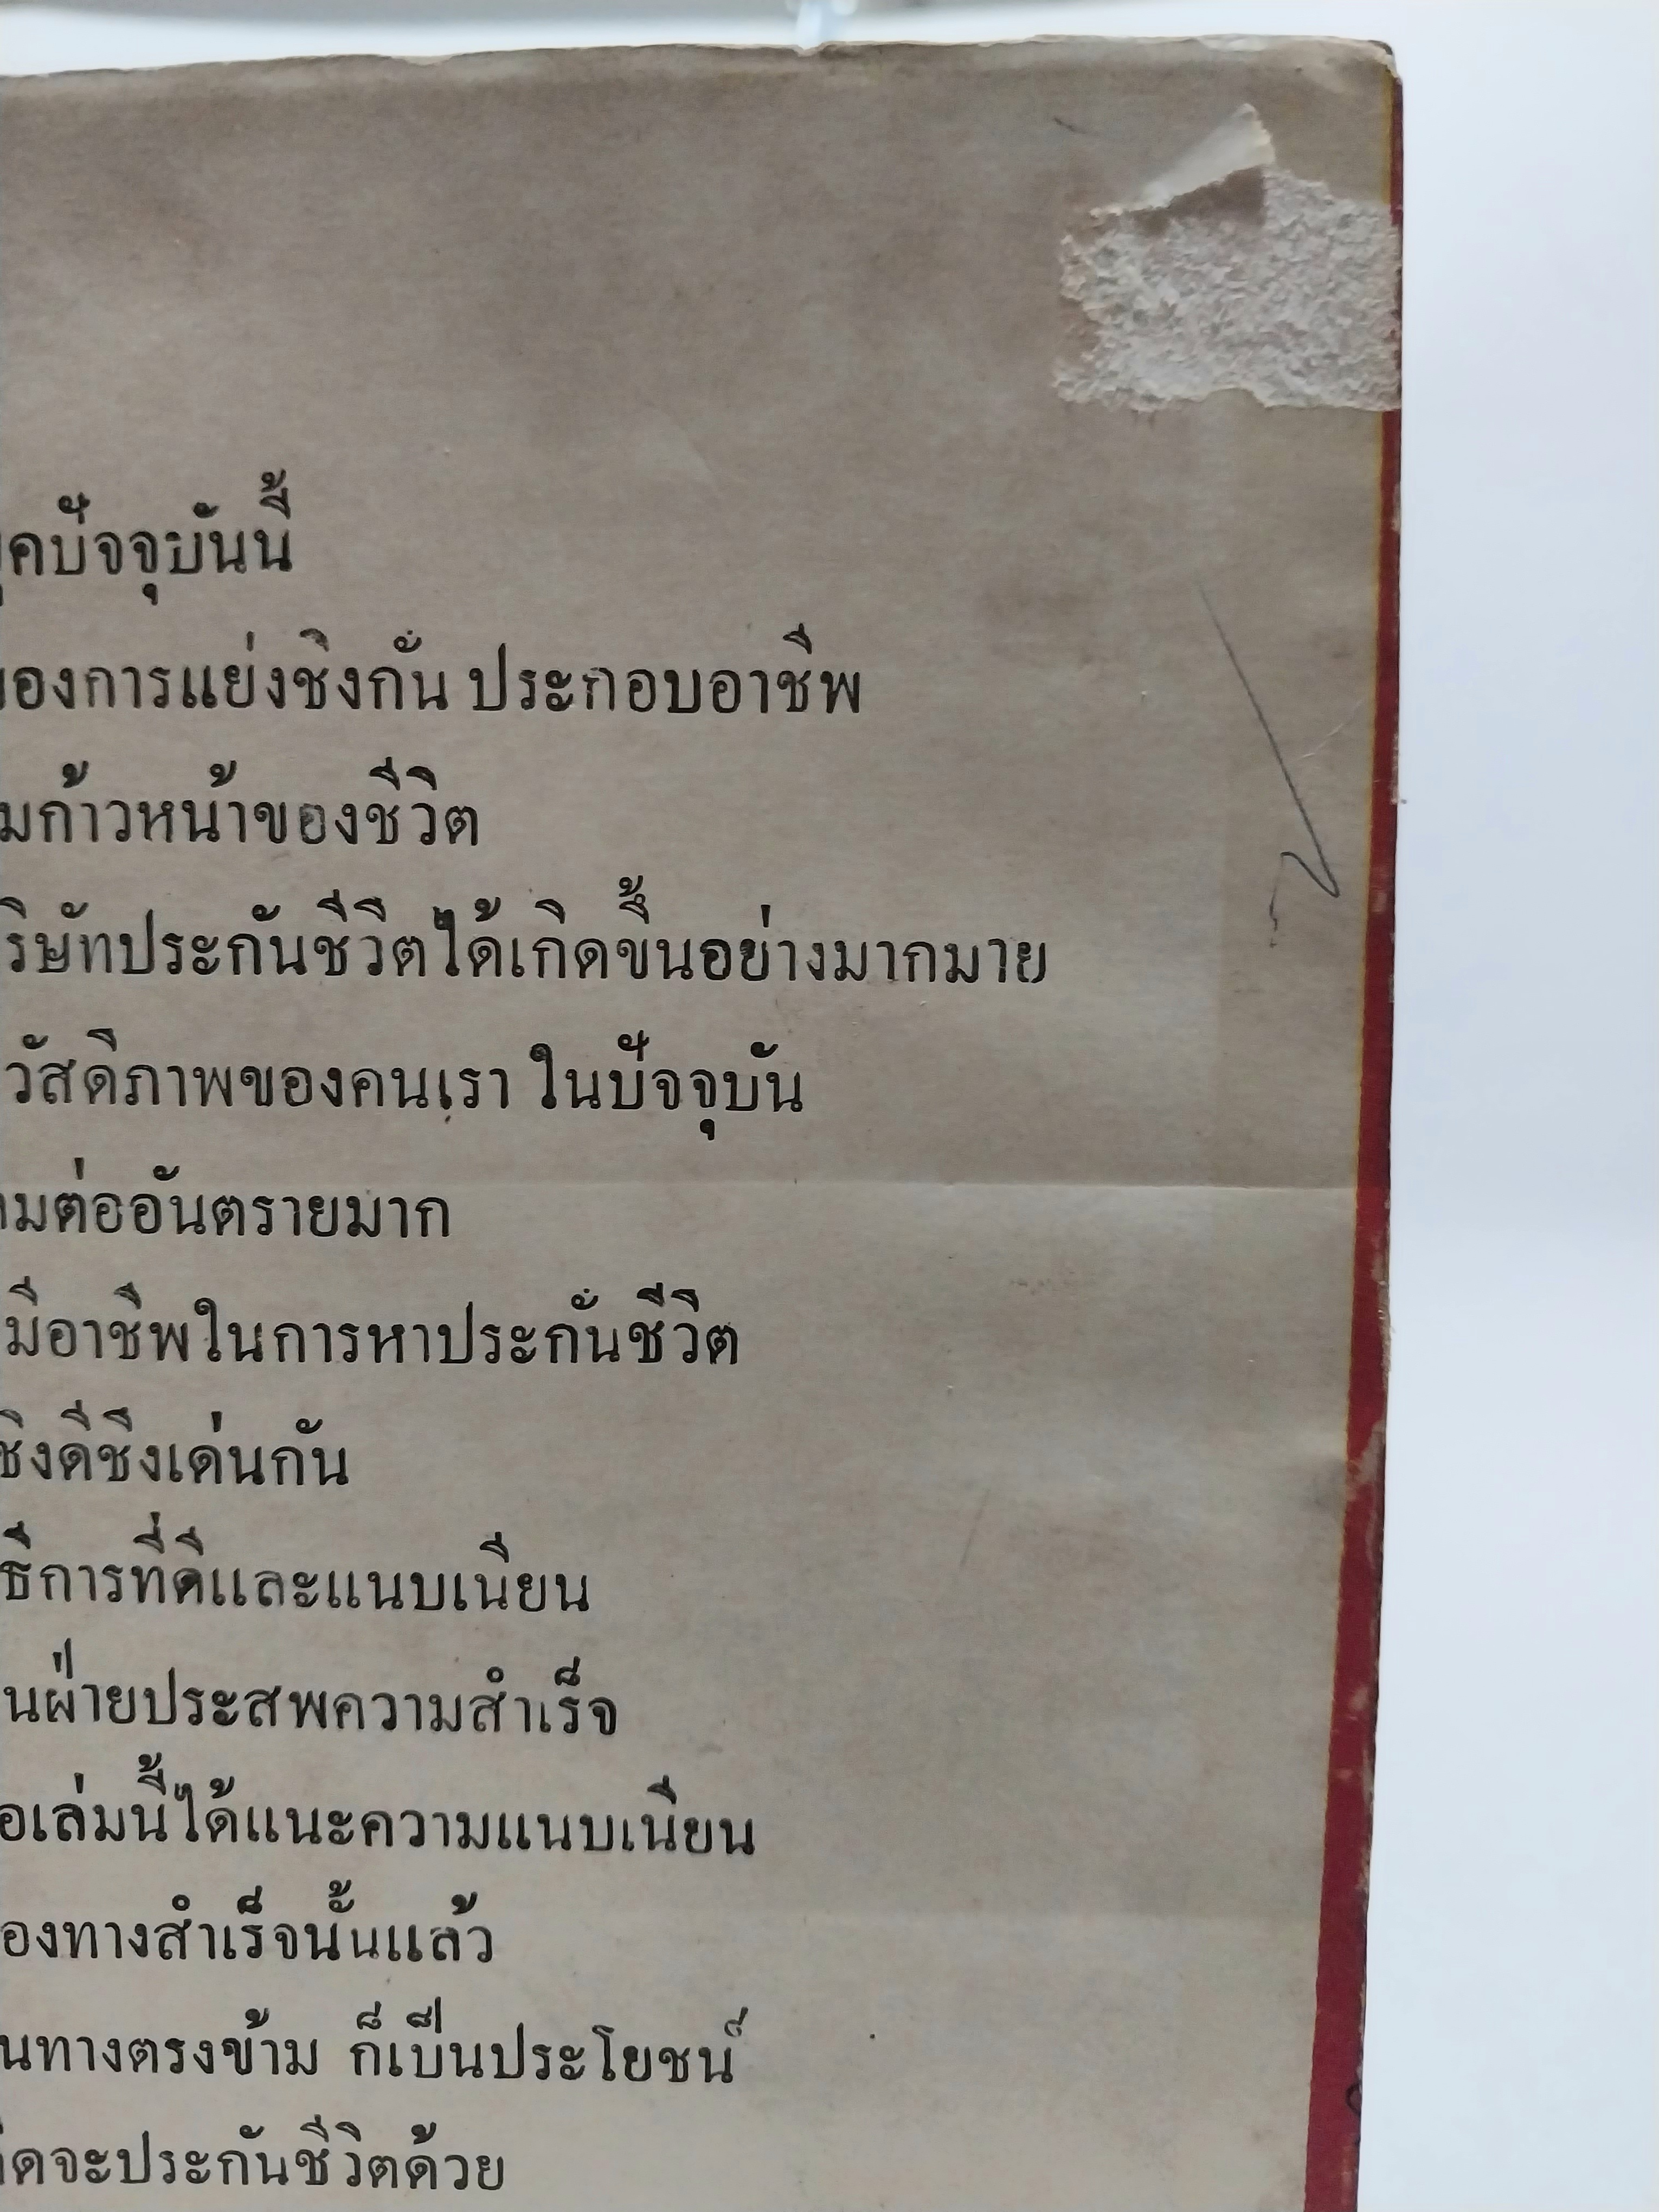 ยุคปัจจุบันนี้
ของการแย่งชิงกัน ประกอบอาชีพ
มก้าวหน้าของชีวิต
ริษัทประกันชีวิตได้เกิดขึ้นอย่างมากมาย
วัสดิภาพของคนเรา ในปัจจุบัน
ามต่ออันตรายมาก
มีอาชีพในการหาประกันชีวิต
ชิงดีชิงเด่นกัน
ธีการที่ดีและแนบเนียน
นฝ่ายประสพความสำเร็จ
อเล่มนี้ได้แนะความแนบเนียน
องทางสำเร็จนั้นแล้ว
นทางตรงข้าม ก็เป็นประโยชน์
ิดจะประกันชีวิตด้วย